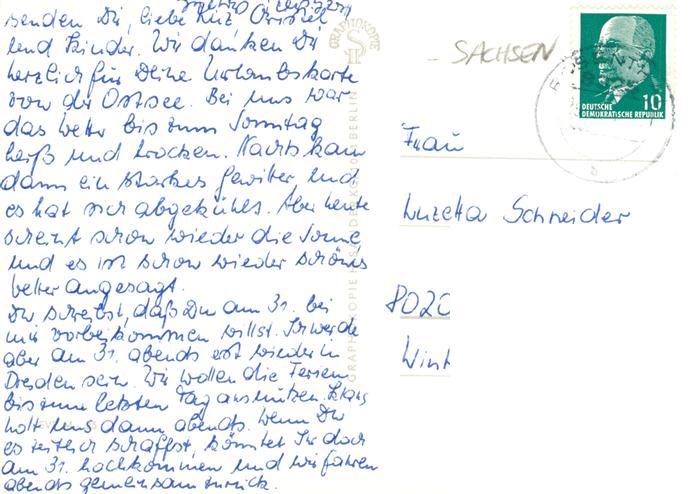 senden Dir, liebe
und Kinder. Wir danken Dir
herzlich für Deine Urlaubskarte
von der Ostsee. Bei uns war
das Wetter bis zum Sonntag
heiß und trocken. Nachts kam
dann ein starkes Gewitter und
es hat sich abgekühlt. Aber heute
scheint schon wieder die Sonne
und es ist schon wieder schönes
Wetter angesagt.
Du schreibst, daß Du am 31. bei
mir vorbeikommen willst. Ich werde
aber am 31. abends erst wieder in
Dresden sein. Wir wollen die Ferien
bis zum letzten Tag ausnützen. Klaus
holt uns dann abends. Wenn Du
es zeitlich schaffst, könntet Ihr doch
am 31. hochkommen und wir fahren
abends gemeinsam zurück.
GRAPHOKOPIE
GRAPHOKOPIE H. SANDER KG BERLIN
SACHSEN
DEUTSCHE
DEMOKRATISCHE REPUBLIK
10
Frau
Luzetta Schneider
8020